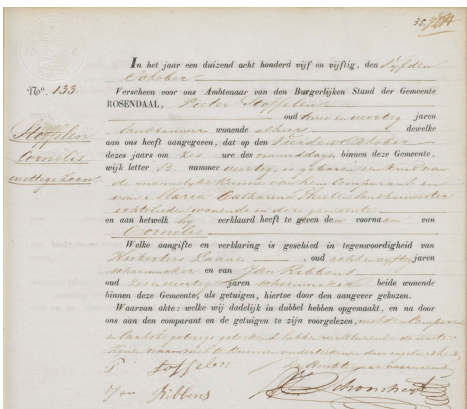 35.
No. 133
Stoffelen
Cornelis
wettige Zoon
In het jaar een duizend acht honderd vijf en vijftig, den Vyfden
October
Verscheen voor ons Ambtenaar van den Burgerlijken Stand der Gemeente
ROSENDAAL, Pieter Stoffelen
oud twee en veertig jaren
landbouwer wonende alhier, dewelke
aan ons heeft aangegeven, dat op den Vierden October
dezes jaars om zes ure des middags, binnen deze Gemeente,
wijk letter B nummer veertig, is geboren een kind van
de mannelyke kunne van hem Comparant en
van Maria Catharina landbouwster
echtelieden wonende in deze gemeente
en aan hetwelk hy verklaard heeft te geven den voornaam van
Cornelis
Welke aangifte en verklaring is geschied in tegenwoordigheid van
oud jaren
schoenmaker en van Jan Ribbens
oud zes en veertig jaren schoenmaker beide wonende
binnen deze Gemeente, als getuigen, hiertoe door den aangever gekozen.
Waarvan akte: welke wij dadelijk in dubbel hebben opgemaakt, en na door
ons aan den comparant en de getuigen te zijn voorgelezen, met den Comparant
en laatste getuige geteekend hebben verklarende de eerste
getuige naam niet te kunnen
P Stoffelen
Jan Ribbens